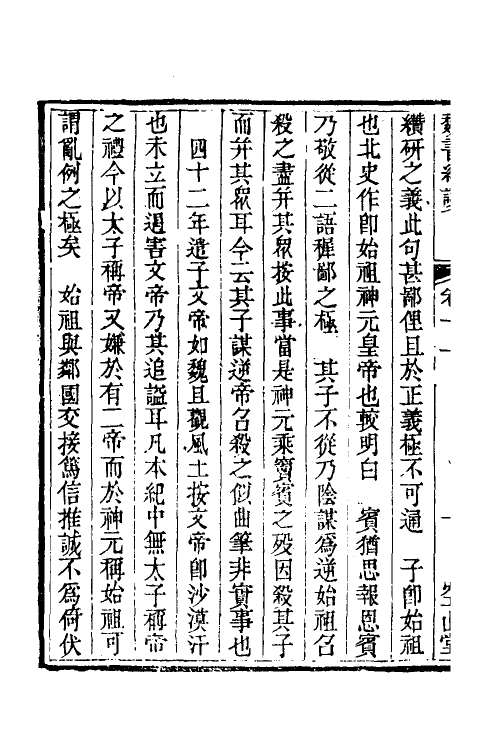 魏書
卷一
纘研之義此句甚鄙俚且於正義極不可通　子卽始祖
也北史作卽始祖神元皇帝也較明白　賓猶思報恩賓
乃敬從二語穉鄙之極　其子不從乃陰謀爲逆始祖召
殺之盡幷其眾按此事當是神元乘竇賓之歿因殺其子
而幷其眾耳今云其子謀逆帝召殺之似曲筆非實事也
四十二年遣子文帝如魏且觀風土按文帝卽沙漠汗
也未立而遇害文帝乃其追謚耳凡本紀中無太子稱帝
之禮今以太子稱帝又嫌於有二帝而於神元稱始祖可
謂亂例之極矣　始祖與鄰國交接篤信推誠不爲倚伏